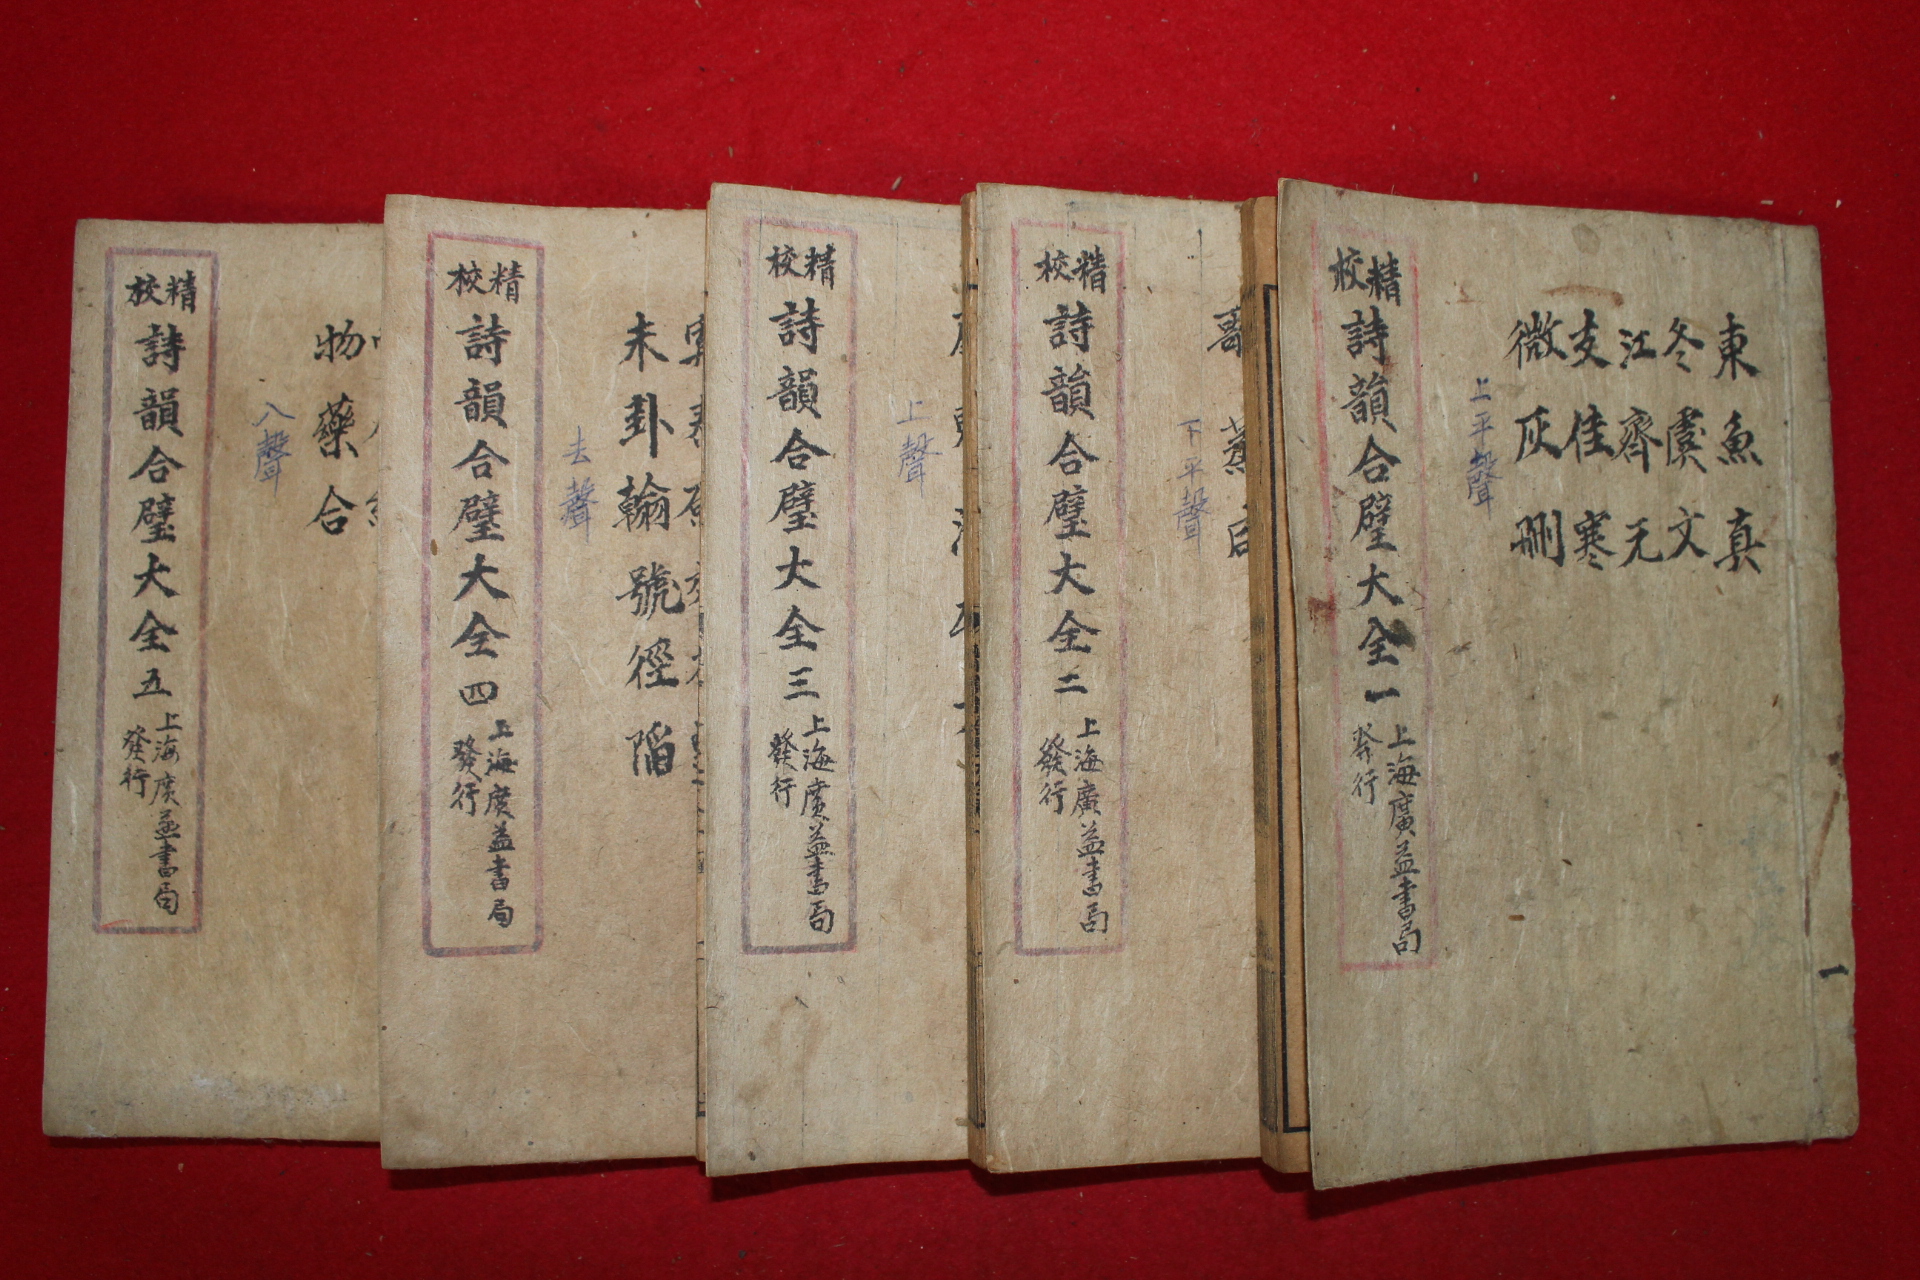 東魚真
冬虞文
江齊元
支佳寒
微灰刪
上平聲
精校
詩韻合璧大全一
上海廣益書局
發行
一
歌蒸
下平聲
精校
詩韻合璧大全二
上海廣益書局
發行
上聲
精校
詩韻合璧大全三
上海廣益書局
發行
未卦翰號徑陷
去聲
精校
詩韻合璧大全四
上海廣益書局
發行
物藥合
入聲
精校
詩韻合璧大全五
上海廣益書局
發行